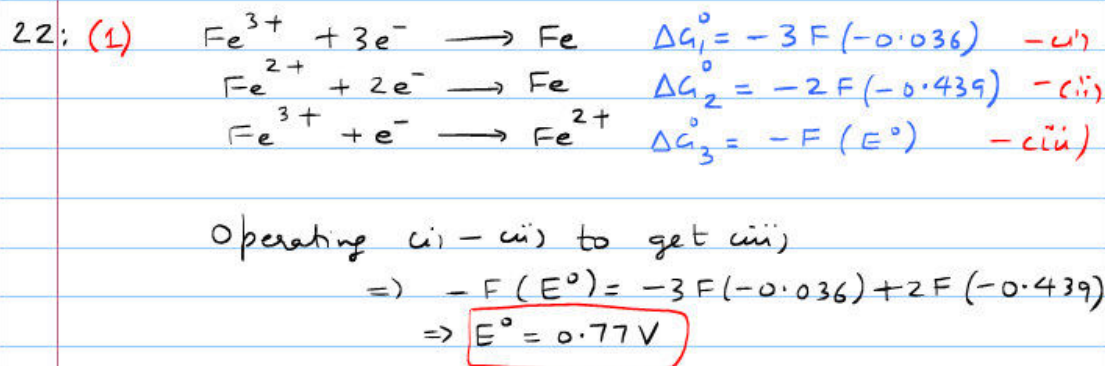 22: (1) Fe³⁺ + 3e⁻ ⟶ Fe ΔG₁° = - 3 F (-0.036) - (i)
Fe²⁺ + 2e⁻ ⟶ Fe ΔG₂° = - 2 F (-0.439) - (ii)
Fe³⁺ + e⁻ ⟶ Fe²⁺ ΔG₃° = - F (E°) - (iii)
Operating (i) - (ii) to get (iii)
=> - F (E°) = - 3 F (-0.036) + 2 F (-0.439)
=> E° = 0.77 V